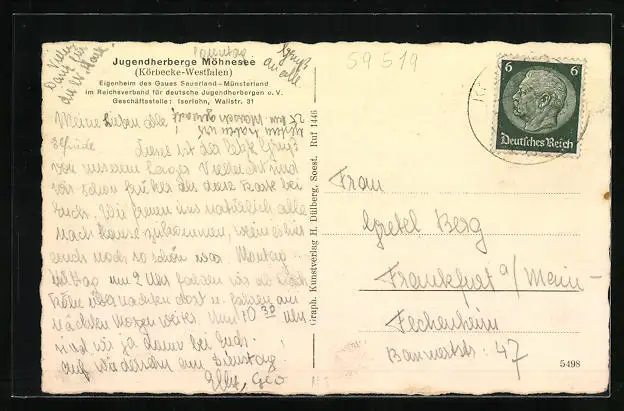 Jugendherberge Möhnesee
(Körbecke-Westfalen)
Eigenheim des Gaues Sauerland—Münsterland
im Reichsverband für deutsche Jugendherbergen e. V.
Geschäftsstelle: Iserlohn, Wallstr. 31
Vielen
Dank für
die
Sonntag
Gruß
an alle
59 519
Meine Lieben alle!
Dieses ist der letzte Gruß
von unserem Lager. Vielleicht sind
wir schon früher als diese Karte bei
Euch. Wir freuen uns natürlich alle
nach Hause zukommen, wenn es hier
auch noch so schön war. Montag
Mittag um 2 Uhr fahren wir ab
übernachten dort u. fahren am
nächsten Morgen weiter. Um 10 30 Uhr
sind wir ja dann bei Euch.
Auf wiedersehn am Dienstag.
Elly, Geo
Graph. Kunstverlag H. Dülberg, Soest. Ruf 1446
6 6
Deutsches Reich
Frau
Gretel Berg
Frankfurt a/Main-
Fechenheim
47
5498